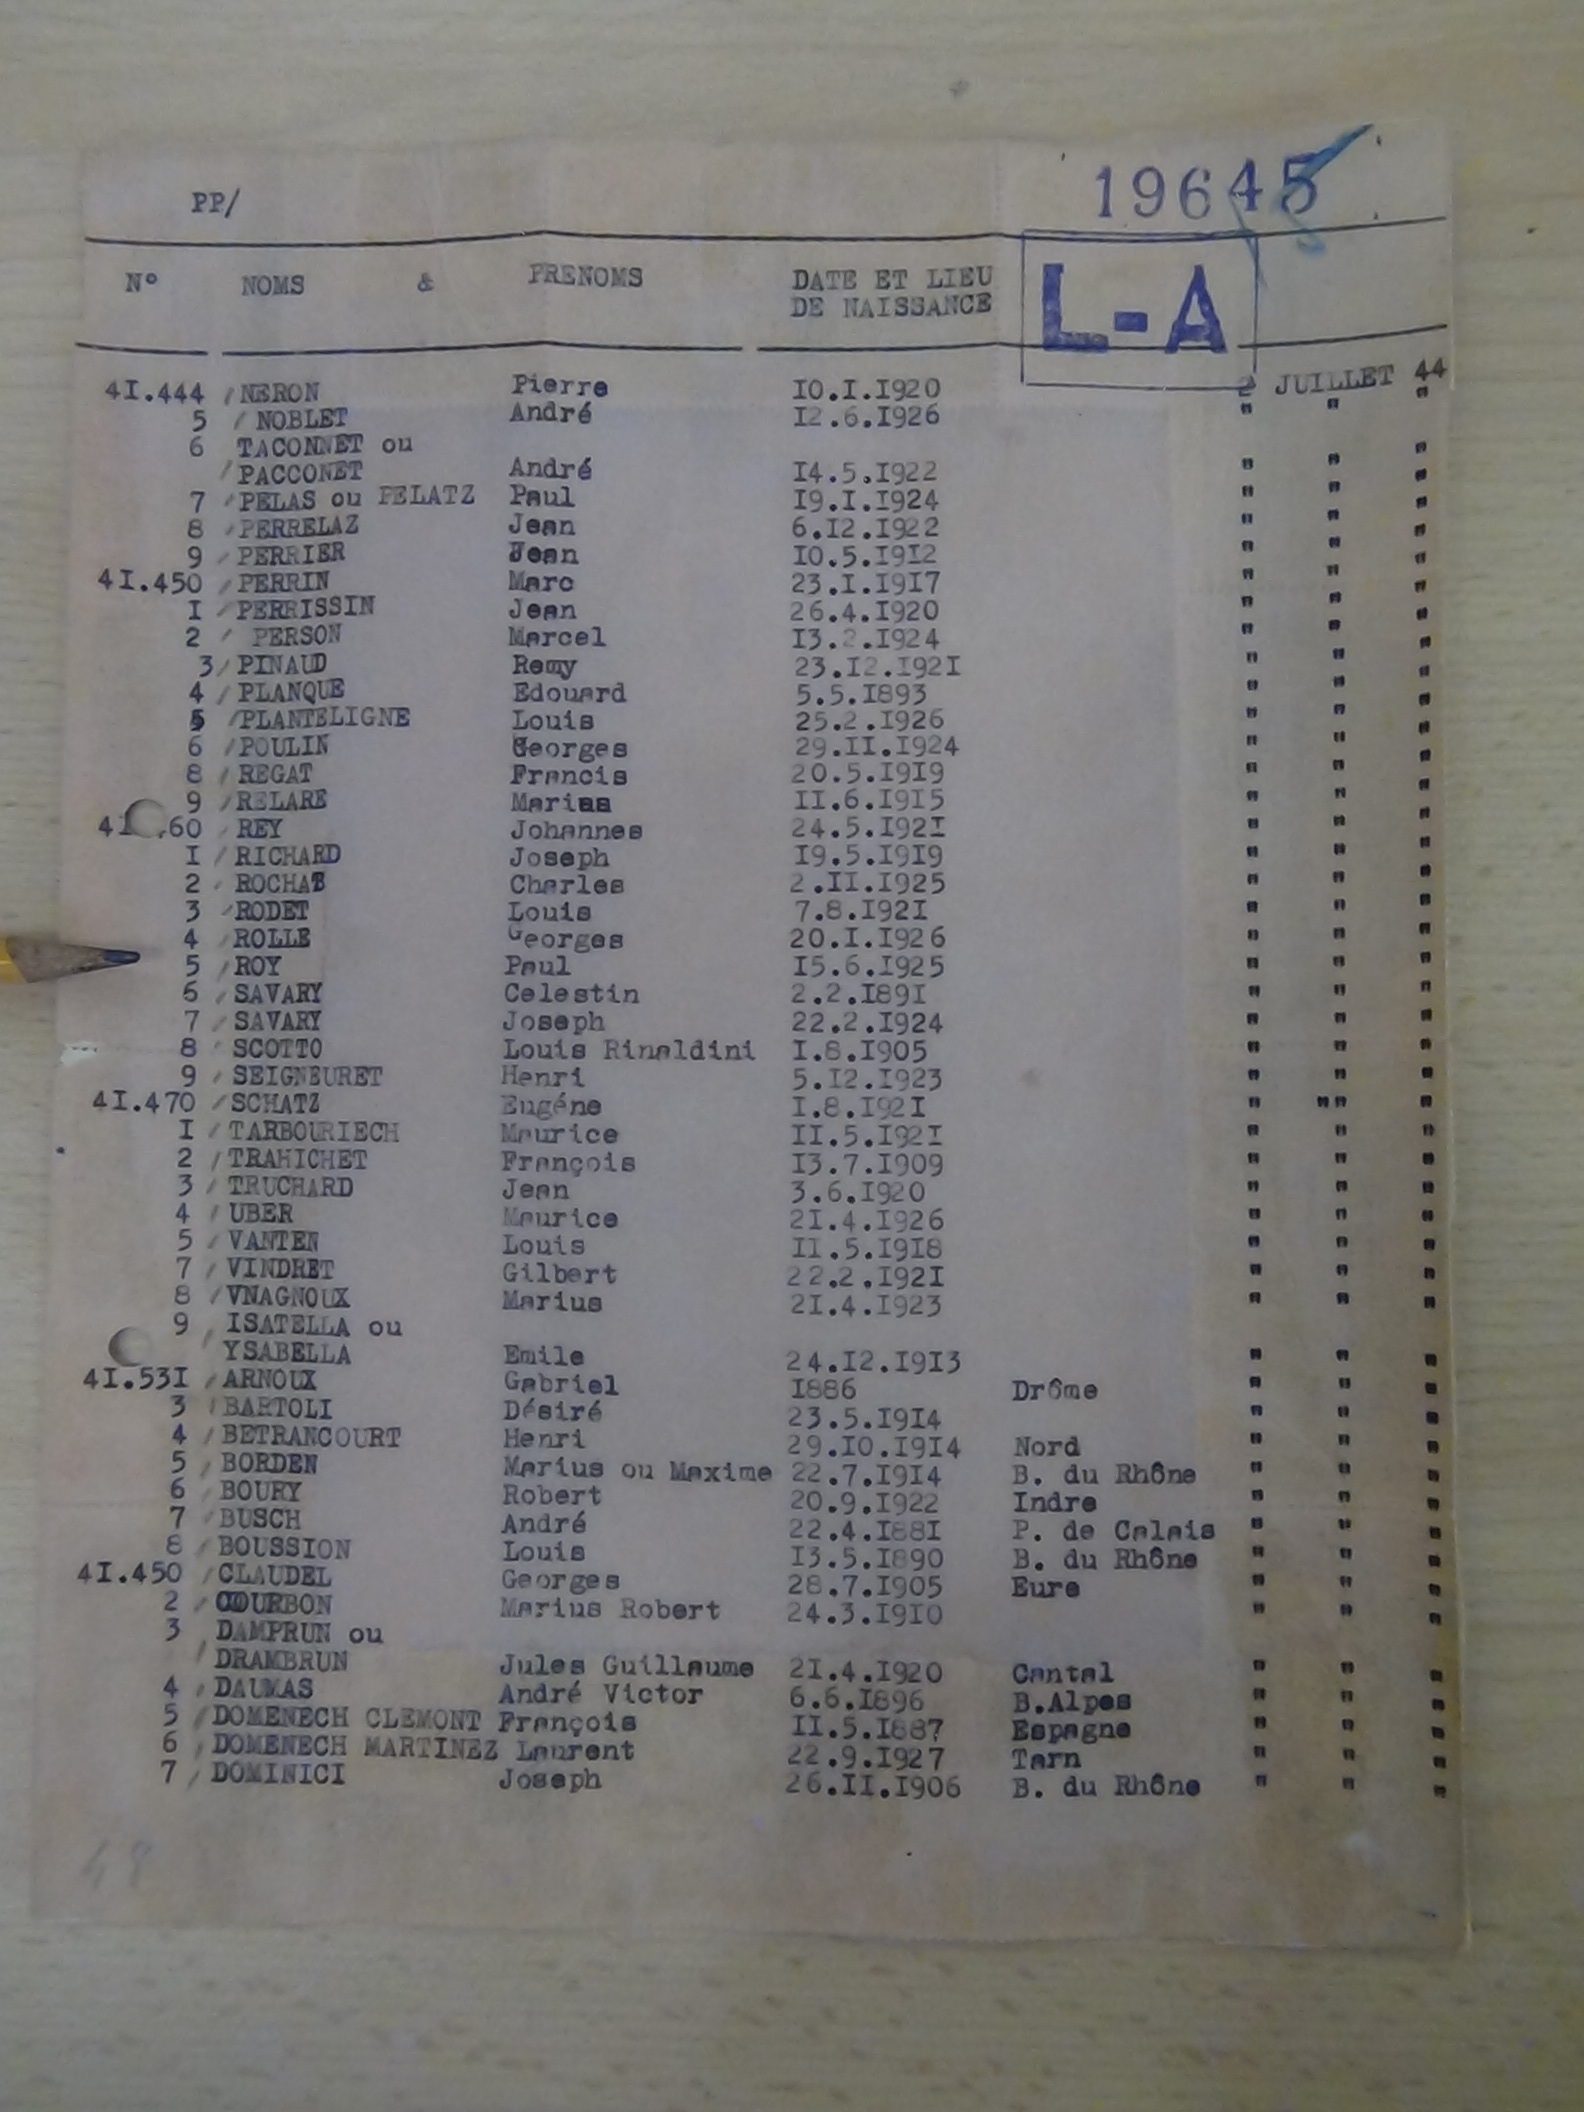 19645
PP/
L-A
N° NOMS & PRENOMS DATE ET LIEU
DE NAISSANCE
41.444 / NERON Pierre 10.I.1920 2 JUILLET 44
5 / NOBLET André I2.6.I926 " " "
6 TACONNET ou
/ PACCONET André I4.5.I922 " " "
7 / PELAS ou PELATZ Paul I9.I.I924 " " "
8 / PERRELAZ Jean 6.I2.I922 " " "
9 / PERRIER Jean I0.5.I9I2 " " "
4I.450 / PERRIN Marc 23.I.I9I7 " " "
I / PERRISSIN Jean 26.4.I920 " " "
2 / PERSON Marcel I3.2.I924 " " "
3 / PINAUD Remy 23.I2.I92I " " "
4 / PLANQUE Edouard 5.5.I893 " " "
5 / PLANTELIGNE Louis 25.2.I926 " " "
6 / POULIN Georges 29.II.I924 " " "
8 / REGAT Francis 20.5.I9I9 " " "
9 / RELARE II.6.I9I5 " " "
4I.60 / REY Johannes 24.5.I92I " " "
I / RICHARD Joseph I9.5.I9I9 " " "
2 / Charles 2.II.I925 " " "
3 / RODET Louis 7.8.I92I " " "
4 / ROLLE Georges 20.I.I926 " " "
5 / ROY Paul I5.6.I925 " " "
6 / SAVARY Celestin 2.2.I89I " " "
7 / SAVARY Joseph 22.2.I924 " " "
8 / SCOTTO Louis Rinaldini I.8.I905 " " "
9 / SEIGNEURET Henri 5.I2.I923 " " "
4I.470 / SCHATZ Eugéne I.8.I92I " "" "
I / TARBOURIECH Maurice II.5.I92I " " "
2 / TRAHICHET François I3.7.I909 " " "
3 / TRUCHARD Jean 3.6.I920 " " "
4 / UBER Maurice 2I.4.I926 " " "
5 / VANTEN Louis II.5.I9I8 " " "
7 / VINDRET Gilbert 22.2.I92I " " "
8 / VNAGNOUX Marius 2I.4.I923 " " "
9 / ISATELLA ou
/ YSABELLA Emile 24.I2.I9I3 " " "
4I.53I / ARNOUX Gabriel I886 Drôme " " "
3 / BARTOLI Désiré 23.5.I9I4 " " "
4 / BETRANCOURT Henri 29.I0.I9I4 Nord " " "
5 / BORDEN Marius ou Maxime 22.7.I9I4 B. du Rhône " " "
6 / BOURY Robert 20.9.I922 Indre " " "
7 / BUSCH André 22.4.I88I P. de Calais " " "
8 / BOUSSION Louis I3.5.I890 B. du Rhône " " "
4I.450 / CLAUDEL Georges 28.7.I905 Eure " " "
2 / COURBON Marius Robert 24.3.I9I0 " " "
3 / DAMPRUN ou
/ DRAMBRUN Jules Guillaume 2I.4.I920 Cantal " " "
4 / DAUMAS André Victor 6.6.I896 B.Alpes " " "
5 / DOMENECH CLEMONT François II.5.I887 Espagne " " "
6 / DOMENECH MARTINEZ Laurent 22.9.I927 Tarn " " "
7 / DOMINICI Joseph 26.II.I906 B. du Rhône " " "